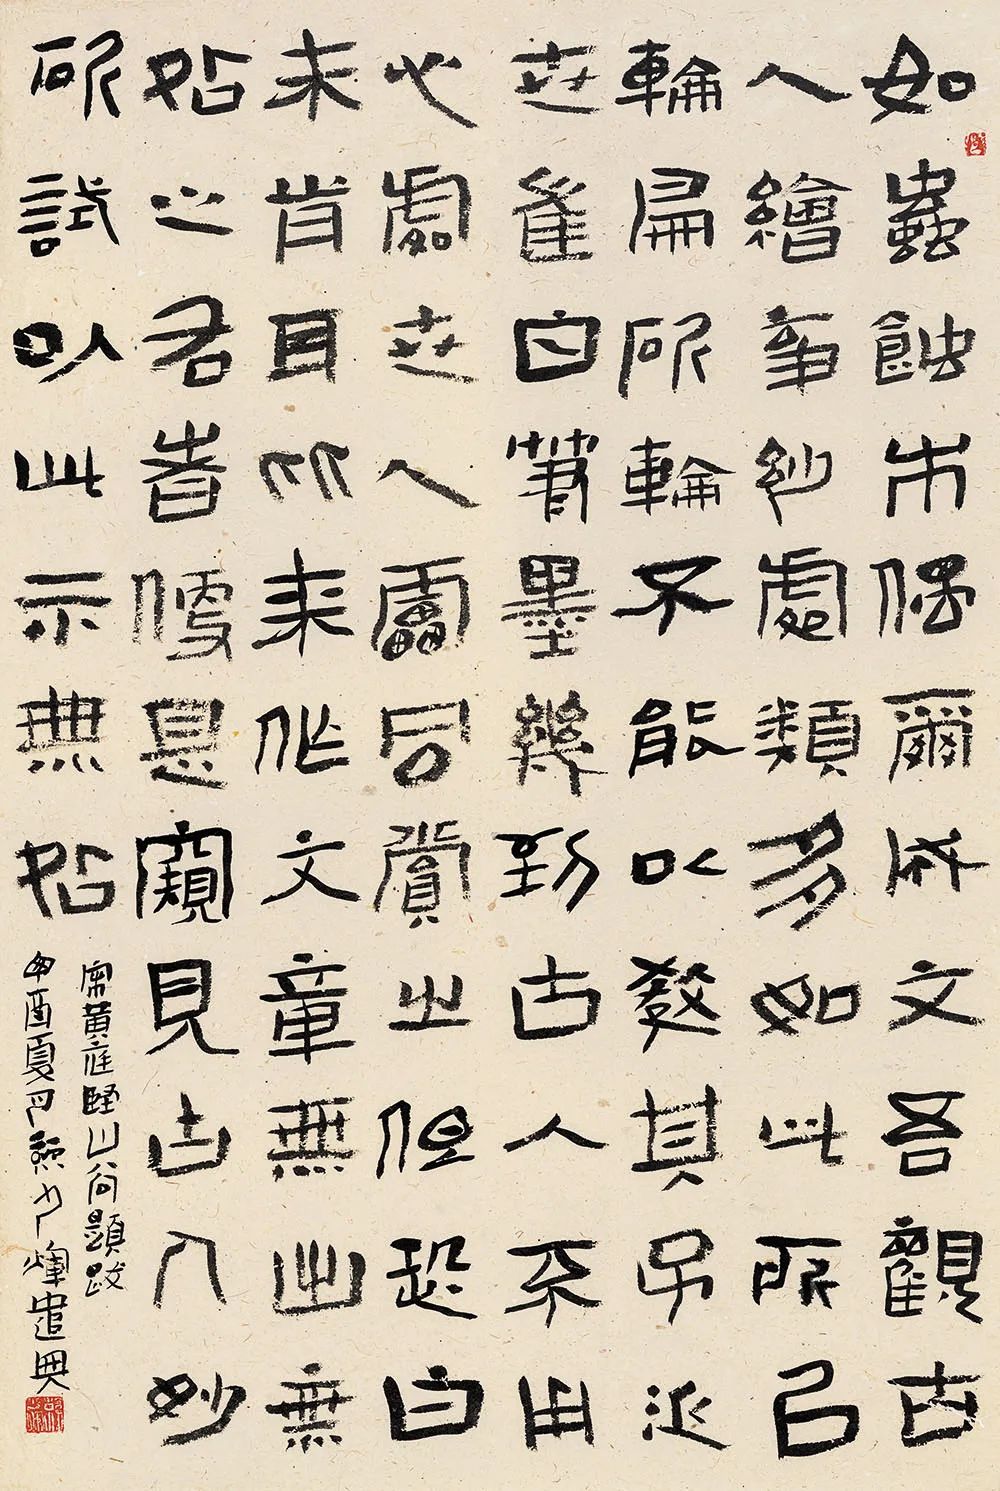 如蟲蝕木偶爾成文吾觀古
人繪事妙處類多如此所以
輪扁斫輪不能以教其子近
世崔白筆墨幾到古人不用
心處世人雷同賞之但恐白
未肯耳比來作文章無出無
咎之右者便是窺見古人妙
斫試以此示無咎
宋黃庭堅山谷題跋
酉夏月少煇遣興